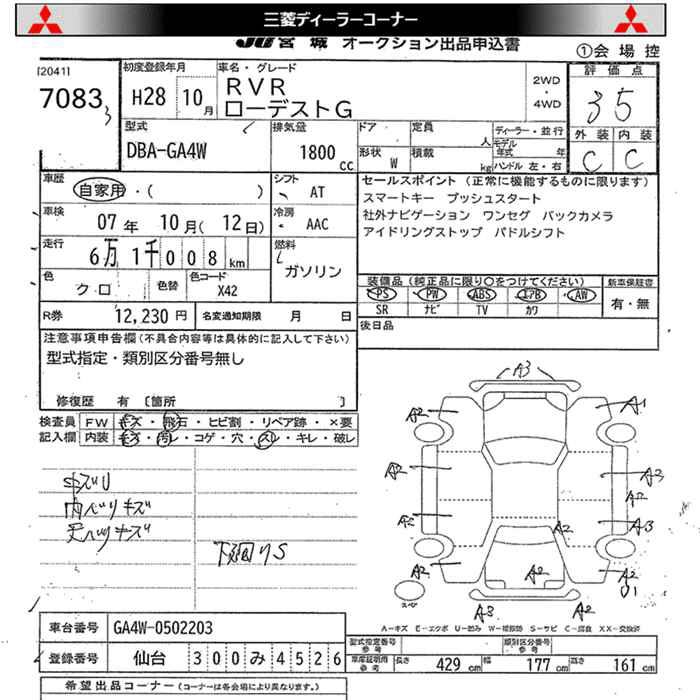 三菱ディーラーコーナー
JU宮城 オークション出品申込書
①会場控
[2041]
7083
3
初度登録年月
H28 10月
車名・グレード
RVR
ローデストG
2WD
・
4WD
評価点
3.5
型式
DBA-GA4W
排気量
1800 cc
ドア
定員 人
ディーラー・並行
モデル年式 年
形状 W
積載 kg
ハンドル 左・右
外装 内装
C C
車歴
自家用・( )
シフト
AT
セールスポイント (正常に機能するものに限ります)
スマートキー プッシュスタート
社外ナビゲーション ワンセグ バックカメラ
アイドリングストップ パドルシフト
車検
07年 10月(12日)
冷房
AAC
走行
6万1千008km
燃料
ガソリン
色
クロ
色替
色コード
X42
装備品(純正品に限り○をつけてください)
新車保証書
PS PW ABS エアB AW
SR ナビ TV カワ
有・無
R券 12,230円
名変通知期限 月 日
後日品
注意事項申告欄(不具合内容等は具体的に記入して下さい)
型式指定・類別区分番号無し
修復歴 有 〔箇所 〕
検査員記入欄
FW キズ・飛石・ヒビ割・リペア跡・×要
内装 キズ・汚レ・コゲ・穴・スレ・キレ・破レ
内ハリキズ
天ハリキズ
下廻りS
A3
A2 A1
A2 A3
A2
A2 A3
A2
A2 A2 A2
U1
スペア
A3 A2
A-キズ E-エクボ U-凹み W-補修跡 S-サビ C-腐食 XX-交換済
車台番号 GA4W-0502203
登録番号 仙台 300み4526
型式指定番号 参考
類別区分番号 参考
車庫証明用 参考 長さ 429cm 幅 177cm 高さ 161cm
希望出品コーナー(コーナーは各会場により異なります。)